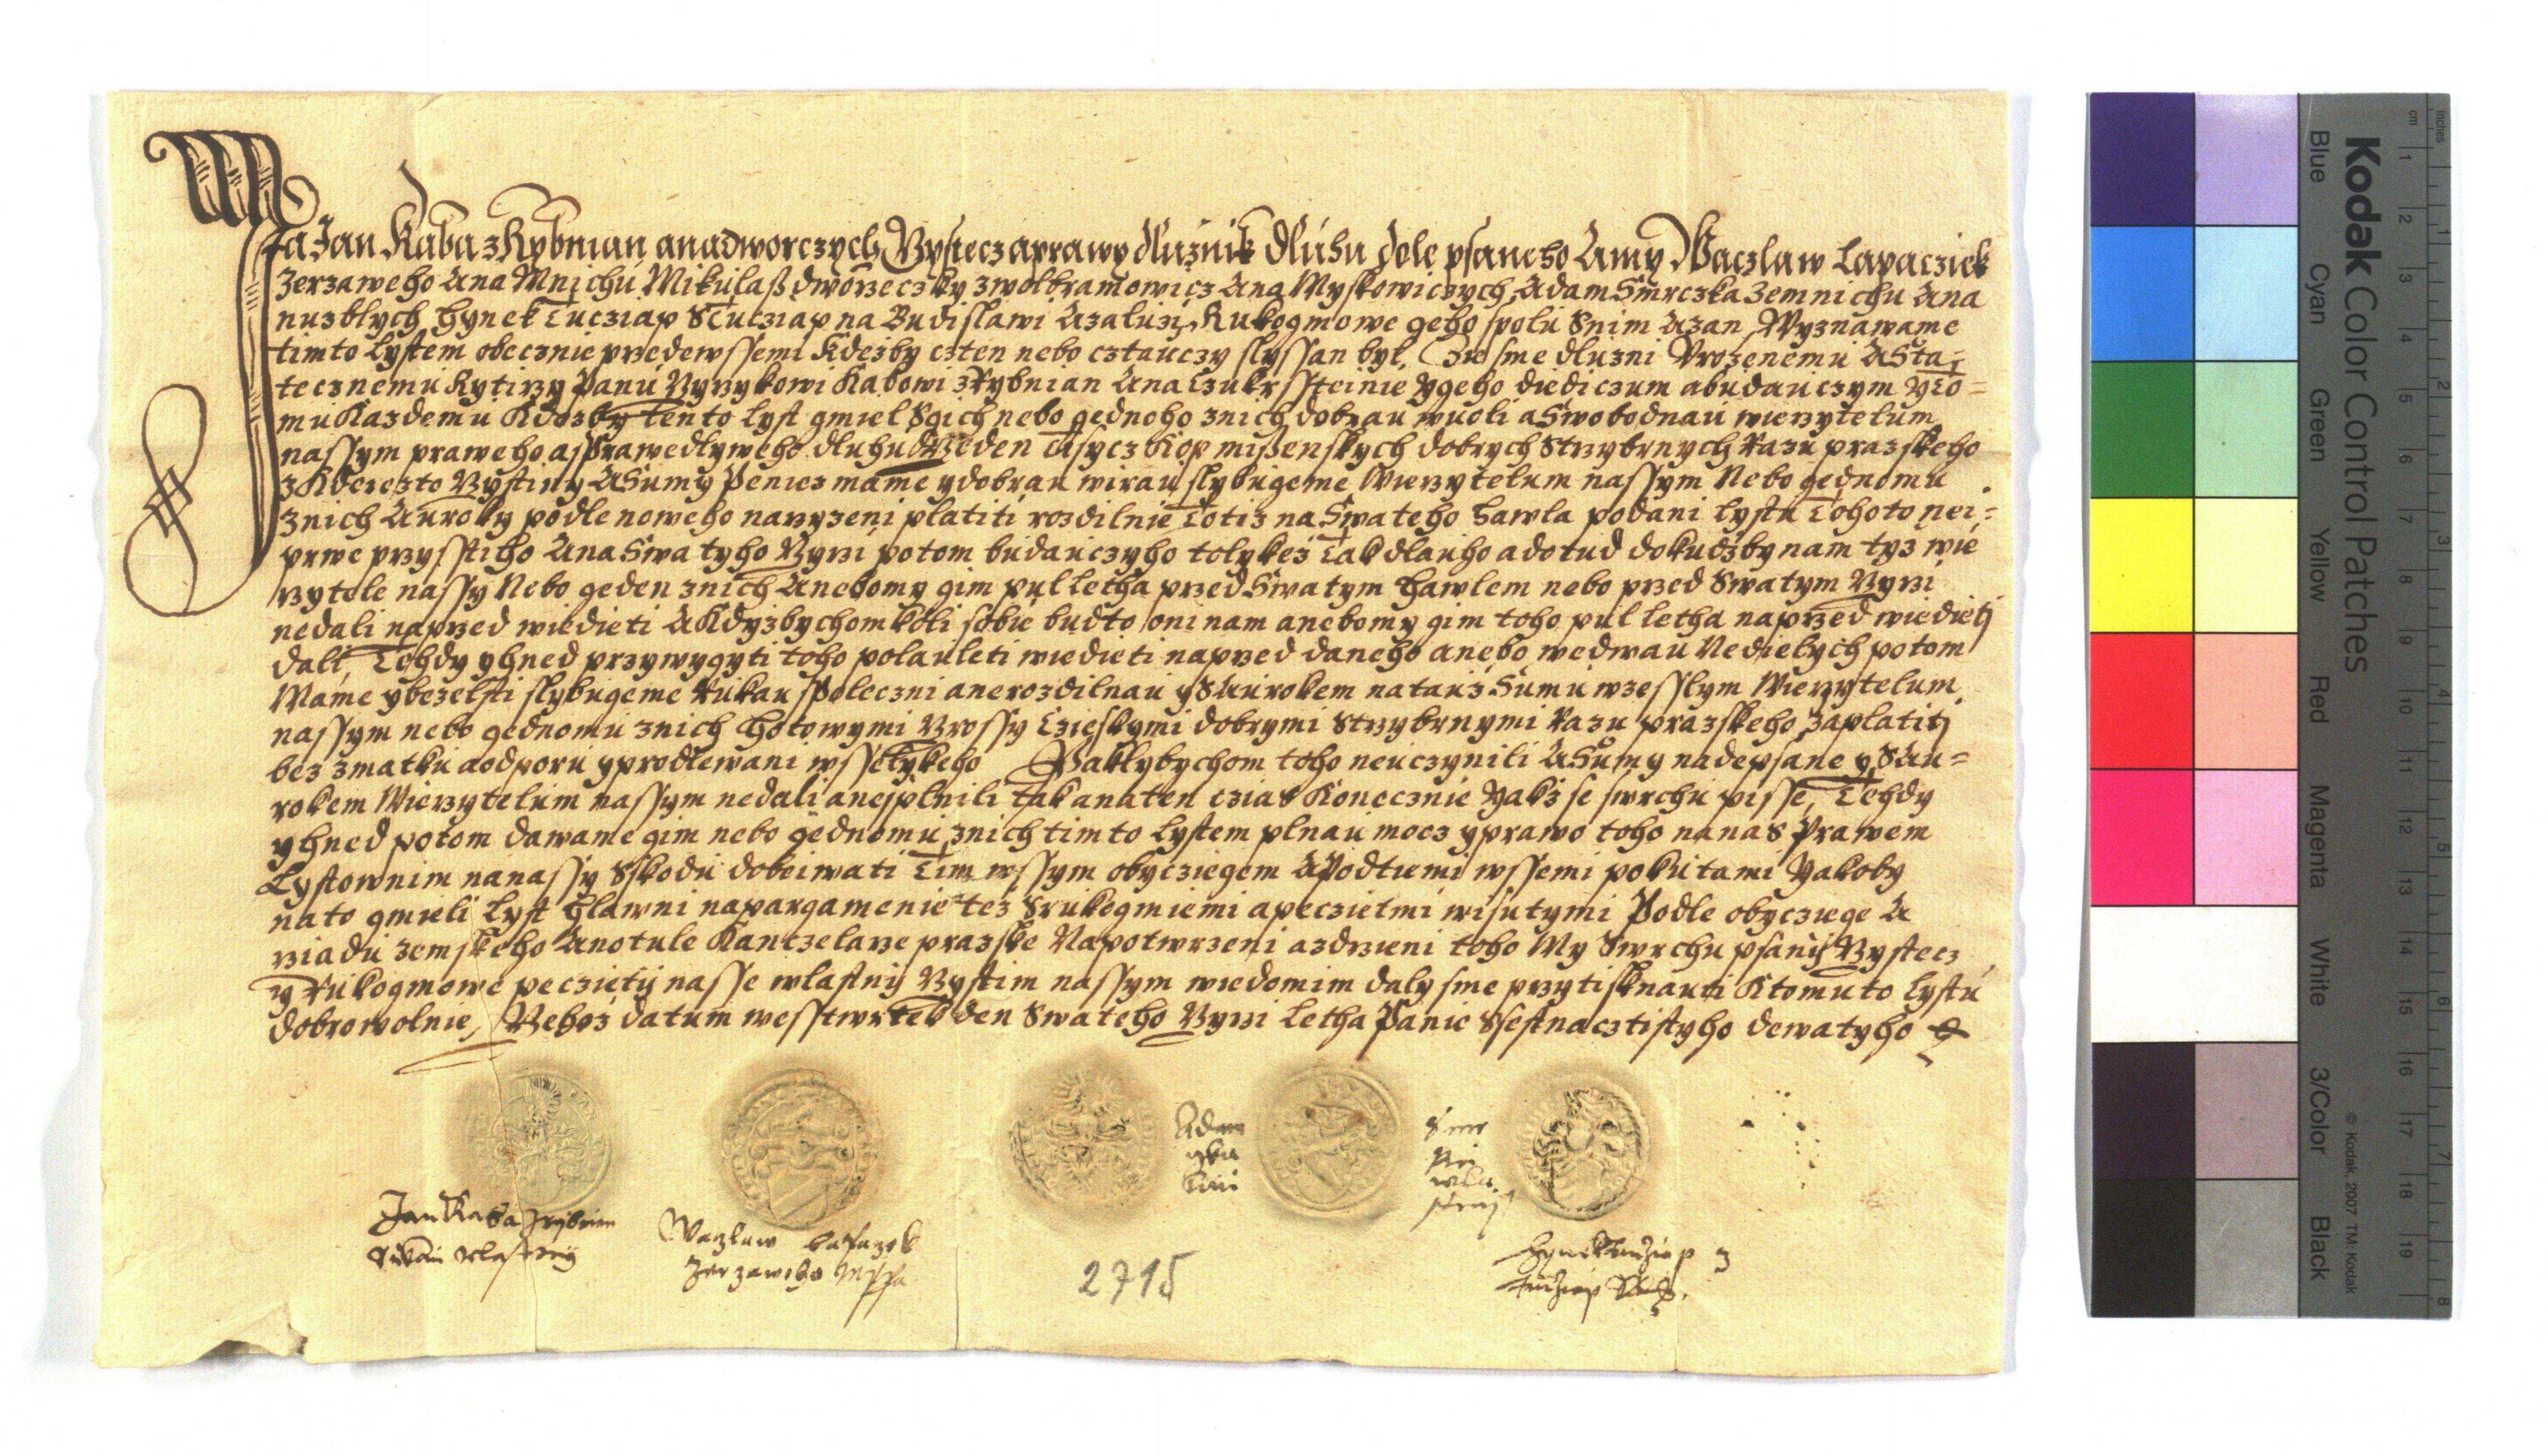 Ja Jan Kaba z Rybnian a na dworczych Rystecz a prawy dlużnik dluhu dole psaneho A my Waczlaw Lapacziek
Zerzaweho A na Mnichu Mikulaß dworzeczky z wolbramowicz A na Myskowiczych, Adam Smrczka Zemnichu A na
nuzblych Hynek Tucziap S Tucziap na Budislawi A zaluzi, Rukogmowe geho spolu S nim A zan, Wyznawame
timto Lystem obecznie przedewssemi Kdezby czten nebo cztauczy slyssan byl, Ze sme dluzni Urozenemu A Sta-
tecznemu Rytirzy Panu Ryrzykowi Kabowi z Rybnian A na Czukrssteinie Y geho diediczum a budauczym Y to=
mu Kazdemu Kdozby tento Lyst gmiel S gich nebo gednoho z nich dobrau wuoli a Swobodnau wierzytelum
nassym praweho a sprawedlyweho dluhu Geden Tisycz Kop mißenskych dobrych Strzybrnych razu prazskeho
z Kderezto Rystiny A Sumy Peniez mame y dobrau wirau slybugeme Wierzytelum nassym Nebo gednomu
z nich A uroky podle noweho narzyzeni platiti rozdilnie Totiz na Swateho Hawla podani Lystu Tohoto nei=
prwe przysstiho A na Swatyho Rzyrzi potom budauczyho tolykez Tak dlauho a dotud dokudzby nam tyz wie
rzytele nassy Nebo geden z nich A nebo my gim pul letha przed Swatym Hawlem nebo przed Swatym Rzyrzi
nedali naprzed wiedieti A Kdyzbychom koli sobie budto oni nam anebo my gim toho pul letha naprzed wiedieti
dali, Tehdy y hned przy wygyti toho polauleti wiedieti naprzed daneho anebo we dwau Nedielych potom
Mame y bezelsti slybugeme rukau spoleczni a nerozdilnau y S Aurokem na tauz Sumu wzesslym Wierzytelum
nassym nebo gednomu z nich Hotowymi Grossy Czieskymi dobrymi Strzybrnymi razu prazskeho zaplatiti
bez zmatku a odporu y prodlewani wsselykeho Paklybychom toho neuczynili A Sumy nadepsane y S Au=
rokem Wierzytelum nassym nedali a nesplnili tak a na ten czias Konecznie Yakz se swrchu pisse, Tehdy
y hned potom dawame gim nebo gednomu z nich timto Lystem plnau mocz y prawo toho na nas Prawem
Lystownim na nassy Skodu dobeiwati Tim wssym obycziegem A Pod tiemi wssemi pokutami Yakoby
na to gmieli Lyst Hlawni na pargamenie tez S rukogmiemi a peczietmi wisutymi Podle obycziege A
rziadu zemskeho A notule Kantzelarze prazske Na potwrzeni a zdrzieni toho My Swrchu psany Rystecz
y Rukogmowe peczieti nasse wlastny Rystim nassym wiedomim daly sme przytisknauti K tomuto Lystu
dobrowolnie, Gehoz datum we sstwrtek den Swateho Rzyrzi Letha Panie Ssestnacztistyho dewatyho
Jan Kaba z rybnian
rukau wlastny
Waczlaw Lapaczek
Zerzaweho
Adam
Smr
czka
ruku
wla
stni
Hynek Tucziap z
Tucziap
2715
Kodak Color Control Patches
Blue Cyan Green Yellow Red Magenta White 3/Color Black
© Kodak, 2007 TM: Kodak
inches 1 2 3 4 5 6 7 8
cm 1 2 3 4 5 6 7 8 9 10 11 12 13 14 15 16 17 18 19